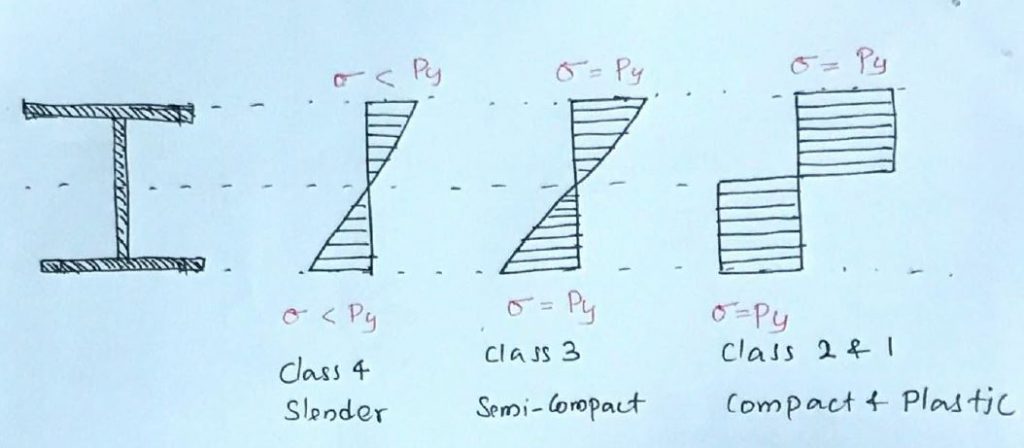 σ < Py
σ = Py
σ = Py
σ < Py
σ = Py
σ=Py
Class 4
Slender
Class 3
Semi-Compact
Class 2 & 1
Compact & Plastic